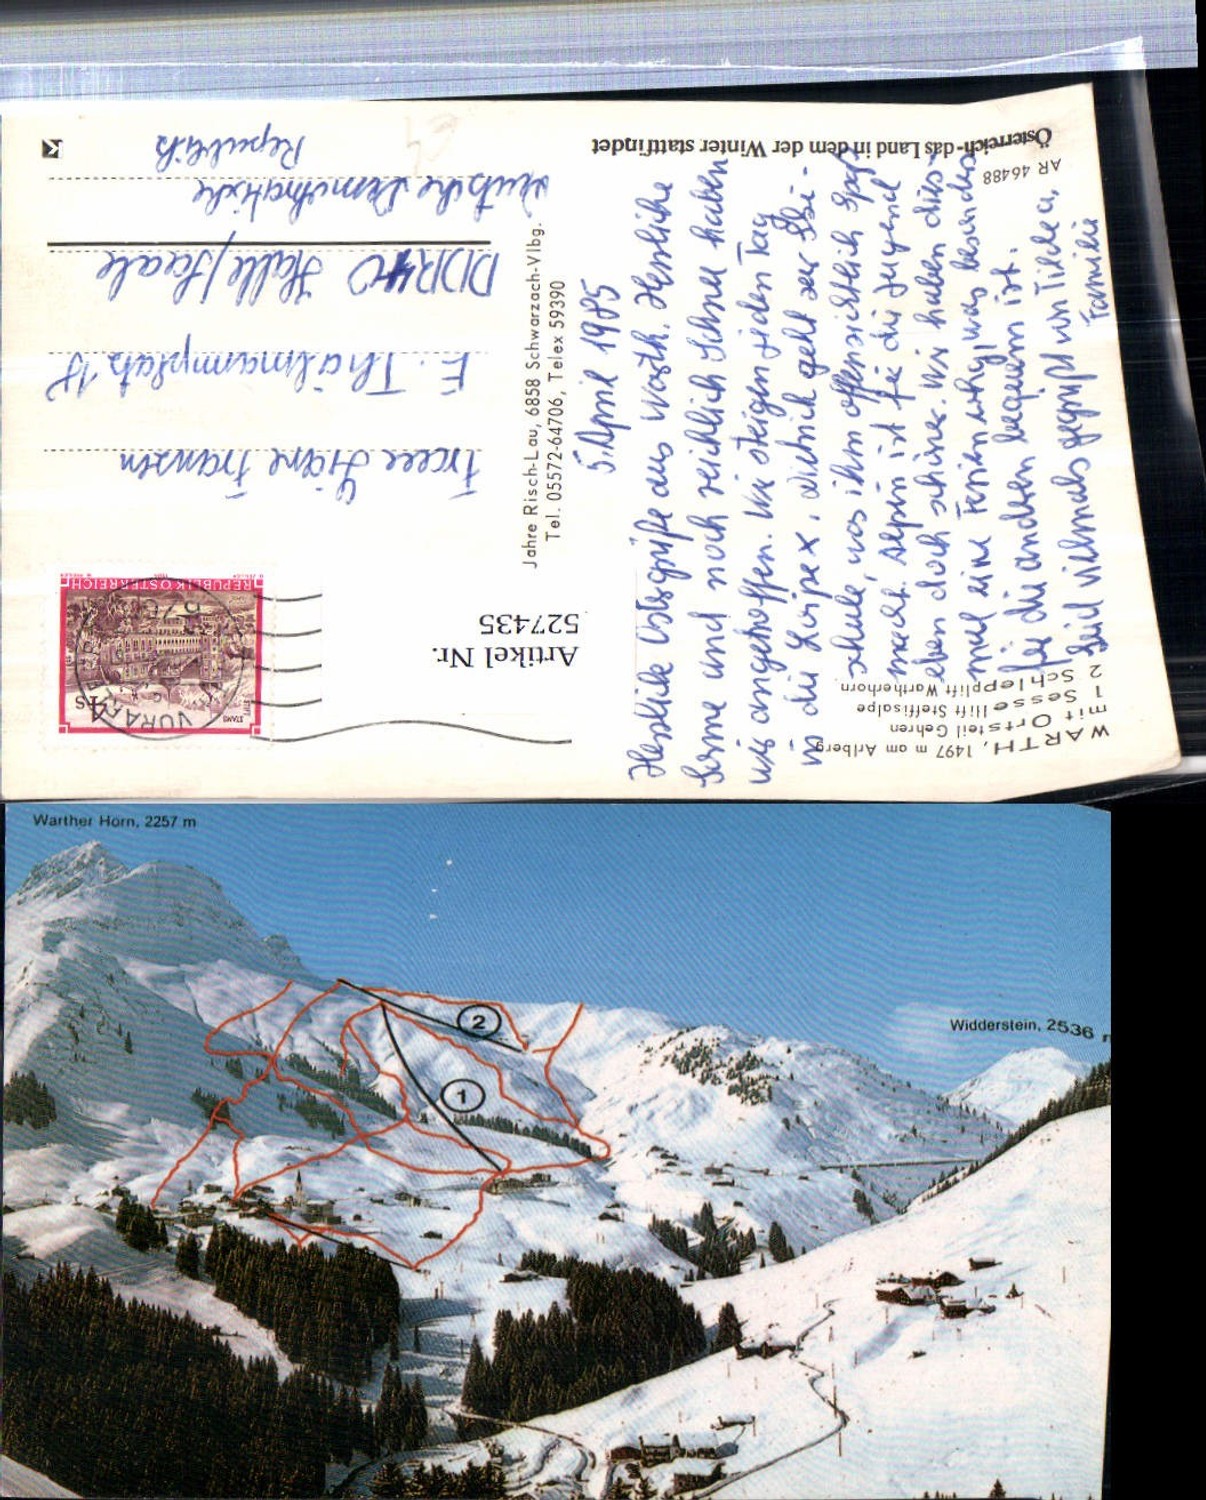 WARTH, 1497 m am Arlberg
mit Ortsteil Gehren
1 Sessellift Steffisalpe
2 Schlepplift Wartherhorn
AR 46488
Österreich - das Land in dem der Winter stattfindet
5. April 1985
Herzliche Ostergrüße aus Warth. Herrliche
Sonne und noch reichlich Schnee haben
wir angetroffen. Wir steigen jeden Tag
in die Loipe x. Dietrich geht zur Ski-
schule, was ihm offensichtlich Spaß
macht. Alpin ist für die Jugend
eben doch schöner. Wir haben dies-
mal eine Ferienwhg, was besonders
für die anderen bequem ist.
Seid vielmals gegrüßt von
Familie
Jahre Risch-Lau, 6858 Schwarzach-Vlbg.
Tel. 05572-64706, Telex 59390
Artikel Nr.
527435
4 S
STIFT
STAMS
REPUBLIK ÖSTERREICH
Franzen
E. Thälmannplatz 18
Halle/Saale
Deutsche Demokratische
Republik
Warther Horn, 2257 m
Widderstein, 2536 m
2
1